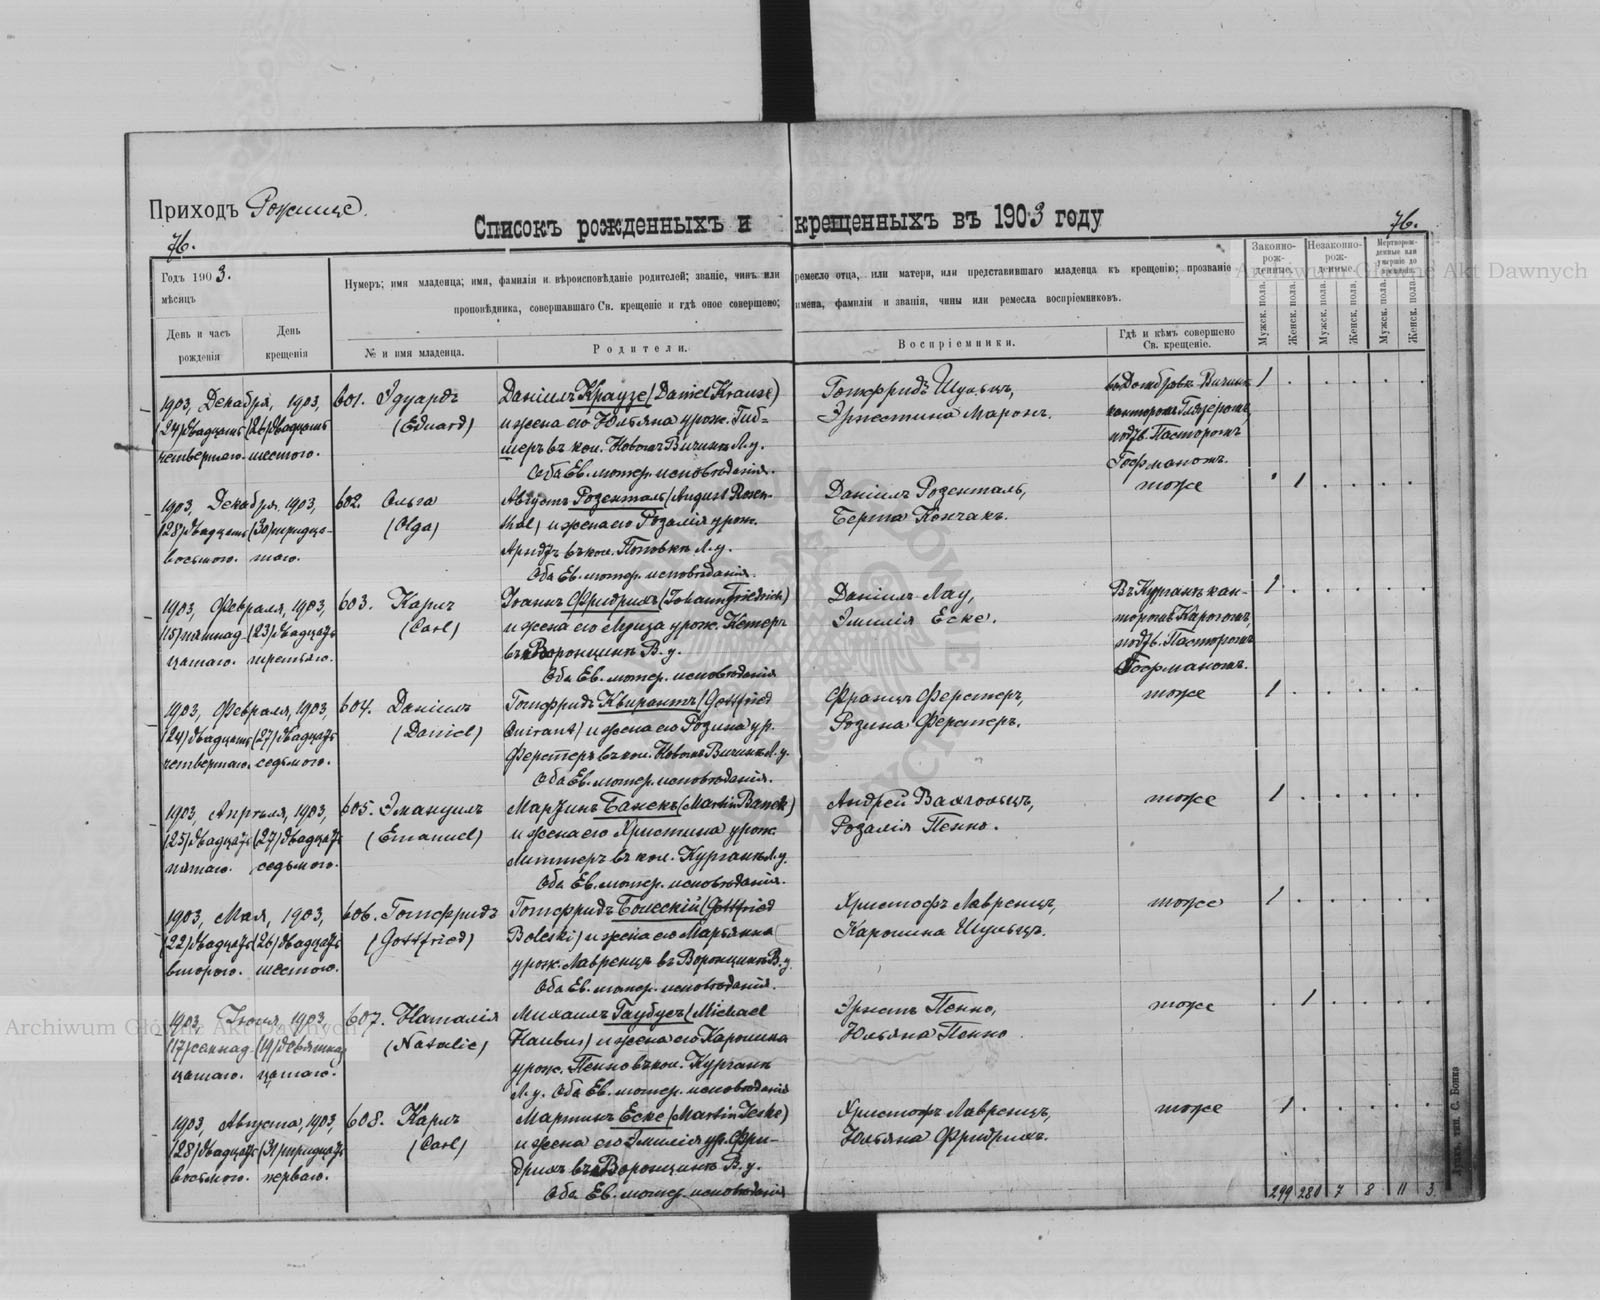 Приходъ Рожище.
Списокъ рожденныхъ и крещенныхъ въ 1903 году
76.
76.
Годъ 1903.
мѣсяцъ
День и часъ рожденія
День крещенія
Нумеръ; имя младенца; имя, фамилія и вѣроисповѣданіе родителей; званіе, чинъ или ремесло отца, или матери, или представившаго младенца къ крещенію; прозваніе
проповѣдника, совершавшаго Св. крещеніе и гдѣ оное совершено; имена, фамиліи и званія, чины или ремесла воспріемниковъ.
№ и имя младенца.
Родители.
Воспріемники.
Гдѣ и кѣмъ совершено Св. крещеніе.
Законно-рожденные.
Незаконно-рожденные.
Мертворожденные или умершіе до крещенія.
Мужск. пола.
Женск. пола.
Мужск. пола.
Женск. пола.
Мужск. пола.
Женск. пола.
1903, Декабря, 1903,
(24) двадцать (26) двадцать
четвертаго. шестого.
601. Эдуардъ
(Eduard)
Даніилъ Краузе (Daniel Krause)
и жена его Юльяна урож. Гиб-
леръ въ кол. Новомъ Вичинѣ Л. у.
Оба Ев. лютер. исповѣданія.
Готфридъ Шульцъ,
Эрнестина Маронъ.
въ Домбровкѣ Вичинѣ
канторомъ Глязеромъ,
подтв. Пасторомъ
Гофманомъ.
1
1903, Декабря, 1903,
(28) двадцать (30) тридца-
восьмого. таго.
602. Ольга
(Olga)
Августъ Розенталь (August Rosen-
thal) и жена его Розалія урож.
Арндтъ въ кол. Поповкѣ Л. у.
Оба Ев. лютер. исповѣданія.
Даніилъ Розенталь,
Берта Кончакъ.
тоже
1
1903, Февраля, 1903,
(15) пятнад- (23) двадцать
цатаго. третьяго.
603. Карлъ
(Carl)
Іоганъ Фридрихъ (Johann Friedrich)
и жена его Луиза урож. Кетеръ
въ Воронцинѣ В. у.
Оба Ев. лютер. исповѣданія
Даніилъ Лау,
Эмилія Еске.
Въ Курганѣ кан-
торомъ Кароломъ,
подтв. Пасторомъ
Гофманомъ.
1
1903, Февраля, 1903,
(24) двадцать (27) двадцать
четвертаго. седьмого.
604. Даніилъ
(Daniel)
Готфридъ Квирантъ (Gottfried
Quirant) и жена его Розина ур.
Ферстеръ въ кол. Новомъ Вичинѣ Л. у.
Оба Ев. лютер. исповѣданія.
Францъ Ферстеръ,
Розина Ферстеръ.
тоже
1
1903, Апрѣля, 1903,
(25) двадцать (27) двадцать
пятаго. седьмого.
605. Эмануилъ
(Emanuel)
Мартинъ Банекъ (Martin Banek)
и жена его Христина урож.
Литтеръ въ кол. Курганѣ Л. у.
Оба Ев. лютер. исповѣданія.
Андрей Вахгольцъ,
Розалія Пенно.
тоже
1
1903, Мая, 1903,
(22) двадцать (26) двадцать
второго. шестого.
606. Готфридъ
(Gottfried)
Готфридъ Болескій (Gottfried
Boleski) и жена его Марьянна
урож. Лавренцъ въ Воронцинѣ В. у.
Оба Ев. лютер. исповѣданія.
Христофъ Лавренцъ,
Каролина Шульцъ.
тоже
1
1903, Іюня, 1903,
(17) семнад- (19) девятнад-
цатаго. цатаго.
607. Наталія
(Natalie)
Михаилъ Гаубусъ (Michael
Haubus) и жена его Каролина
урож. Пенно въ кол. Курганѣ
Л. у. Оба Ев. лютер. исповѣданія
Эрнстъ Пенно,
Юльяна Пенно
тоже
1
1903, Августа, 1903,
(28) двадцать (31) тридцать
восьмого. перваго.
608. Карлъ
(Carl)
Мартинъ Еске (Martin Jeske)
и жена его Эмилія ур. Фри-
дрихъ въ Воронцинѣ В. у.
Оба Ев. лютер. исповѣданія
Христофъ Лавренцъ,
Юльяна Фридрихъ.
тоже
1
299 281 7 8 11 3
Archiwum Główne Akt Dawnych
Archiwum Główne Akt Dawnych